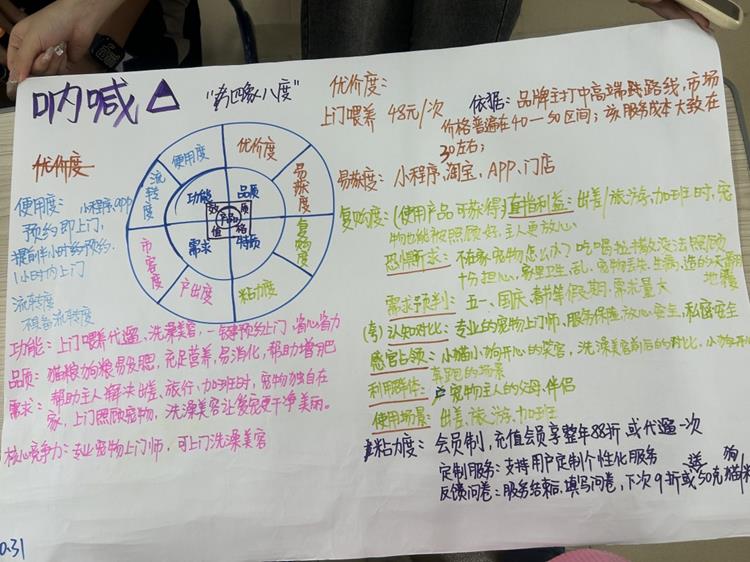 呐喊
"考四象八度"
优价度：
上门喂养 48元/次
依据：品牌主打中高端线路线，市场
价格普遍在40—50区间；该服务成本大致在
30左右；
优价度
使用度：小程序、app
预约即上门，
提前半小时约预约，
1小时内上门
流转度
不具备流转度
使用度
优价度
易猴度
复购度
粘力度
产出度
市客度
流转度
功能
品质
需求
特质
数
质
产品
值
格
易猴度：小程序、淘宝、APP、门店
复购度：（使用产品可获得）直指利益：出差/旅游、加班时，宠
物也能被照顾好，主人更放心
恐惧诉求：不在家宠物怎么办？吃喝拉撒没法照顾
十分担心，家里卫生乱，宠物丢失生病，造的天翻
地覆
需求预判：五一、国庆、春节等假期，需求量大
认知对比：专业的宠物上门师，服务保障放心安全，私密安全
感官占领：小猫小狗开心的笑容，洗澡美容前后的对比，小狗开心
奔跑的场景
利用群体：宠物主人的父母、伴侣
使用场景：出差、旅游、加班
功能：上门喂养代遛、洗澡美容，一键预约上门，省心省力
品质：猫粮狗粮易发腮，充足营养，易消化，帮助增肥
需求：帮助主人解决出差、旅行、加班时，宠物独自在
家，上门照顾宠物，洗澡美容让爱宠更干净美丽。
核心竞争力：专业宠物上门师，可上门洗澡美容
粘力度：会员制，充值会员享整年88折或代遛一次
定制服务：支持用户定制个性化服务
反馈问卷：服务结束后，填写问卷，下次9折或送50克猫/狗粮
0.31